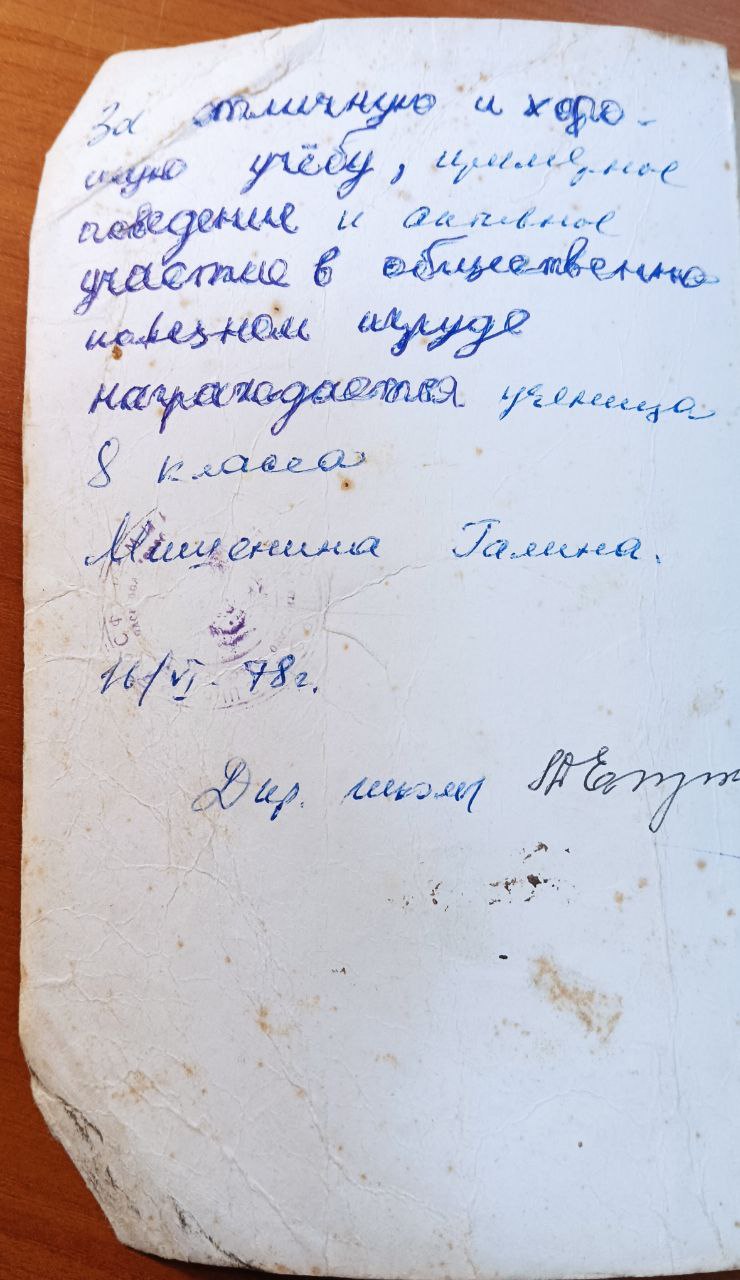 За отличную и хоро-
шую учёбу, примерное
поведение и активное
участие в общественно
полезном труде
награждается ученица
8 класса
Мишенина Галина.
16/VI - 78г.
Дир. школы